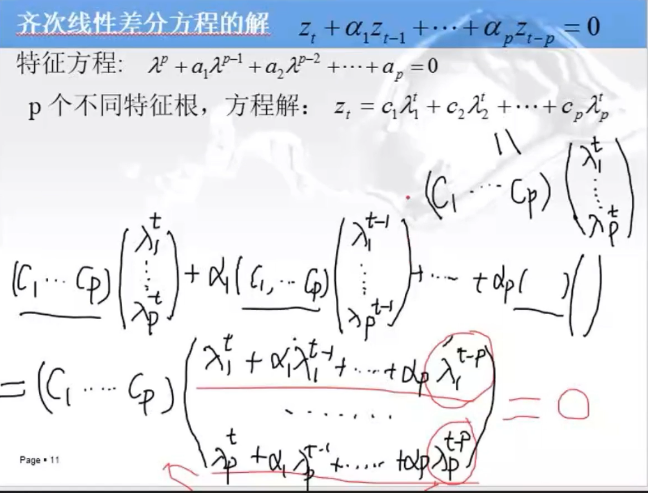 齐次线性差分方程的解 z_t + α_1 z_{t-1} + ⋯ + α_p z_{t-p} = 0
特征方程: λ^p + a_1 λ^{p-1} + a_2 λ^{p-2} + ⋯ + a_p = 0
p 个不同特征根，方程解： z_t = c_1 λ_1^t + c_2 λ_2^t + ⋯ + c_p λ_p^t
= (C_1 ⋯ C_p) (λ_1^t ⋮ λ_p^t)
(C_1 ⋯ C_p) (λ_1^t ⋮ λ_p^t) + α_1 (C_1, ⋯ C_p) (λ_1^{t-1} ⋮ λ_p^{t-1}) + ⋯ + α_p ( ) ( )
= (C_1 ⋯ C_p) (λ_1^t + α_1 λ_1^{t-1} + ⋯ + α_p λ_1^{t-p}
⋯⋯
λ_p^t + α_1 λ_p^{t-1} + ⋯ + α_p λ_p^{t-p}) = 0
Page ▪ 11